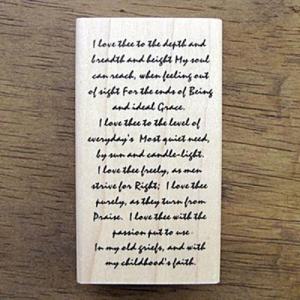 I love thee to the depth and
breadth and height My soul
can reach, when feeling out
of sight For the ends of Being
and ideal Grace.
I love thee to the level of
everyday's Most quiet need,
by sun and candle-light.
I love thee freely, as men
strive for Right; I love thee
purely, as they turn from
Praise. I love thee with the
passion put to use
In my old griefs, and with
my childhood's faith.